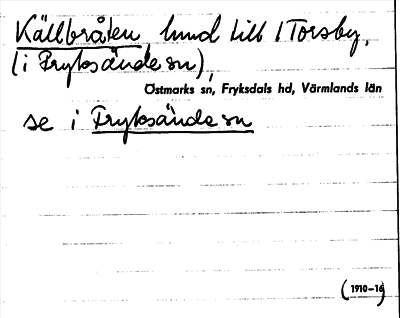 Källbråten hmd till 1 Torsby,
(i Fryksände sn),
Östmarks sn, Fryksdals hd, Värmlands län
se i Fryksände sn
(1910-16)